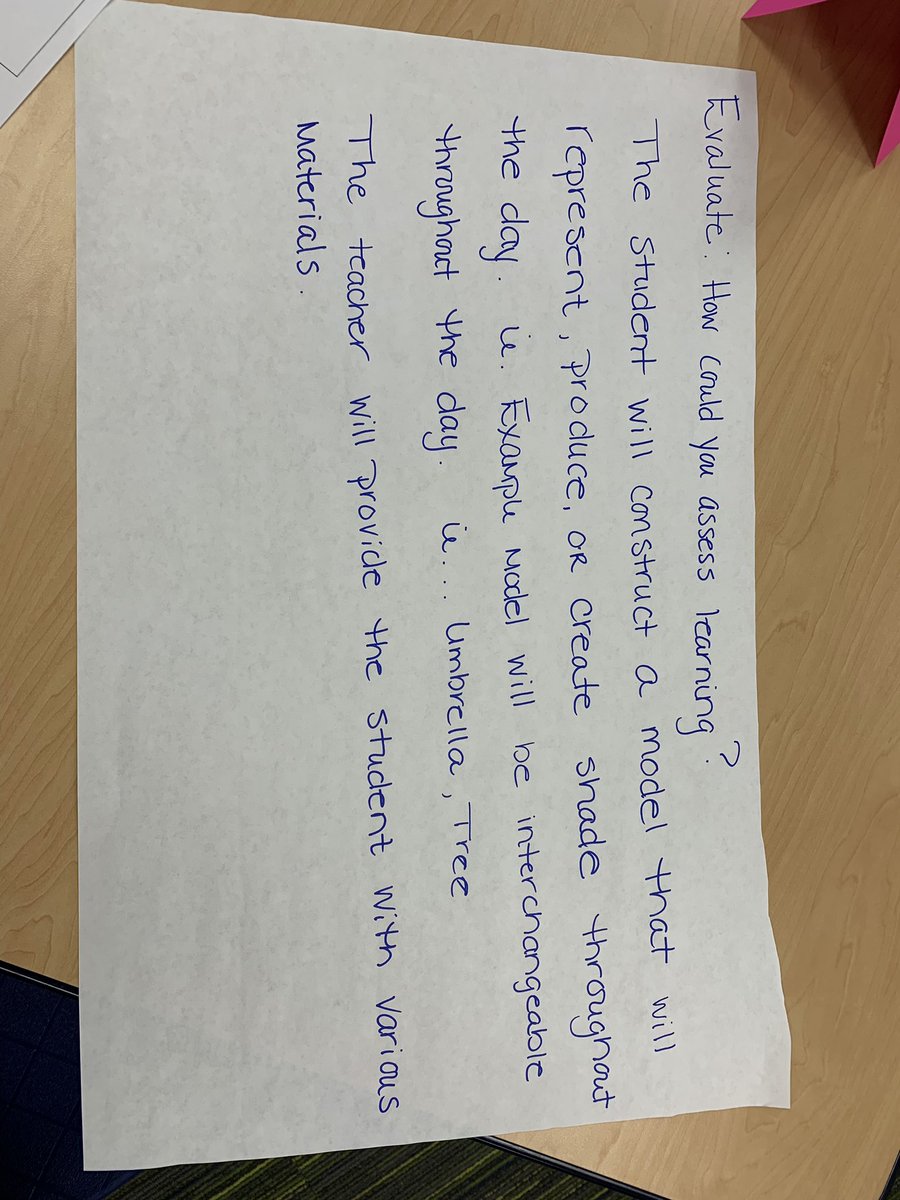 Evaluate: How could you assess learning?
The student will construct a model that will
represent, produce, or create shade throughout
the day. ie. Example model will be interchangeable
throughout the day. ie... Umbrella, Tree
The teacher will provide the student with various
materials.